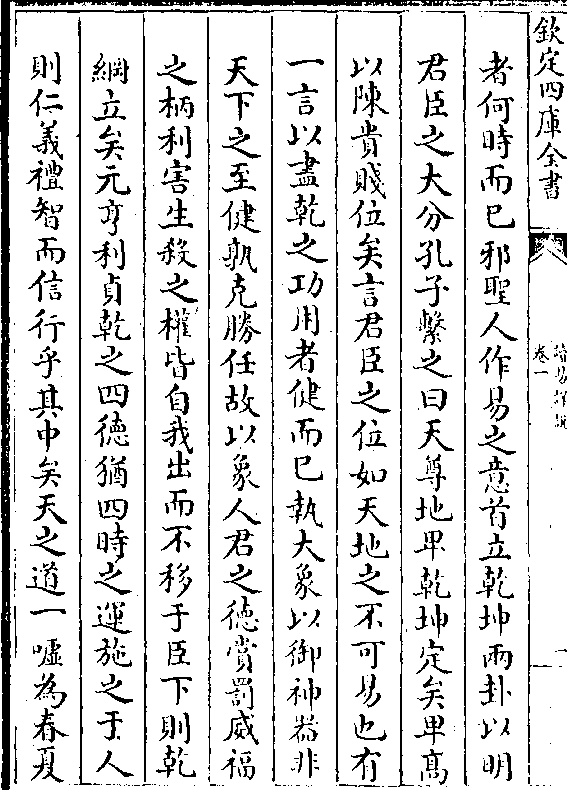 欽定四庫全書
卷一
者何時而已邪聖人作易之意首立乾坤兩卦以明
君臣之大分孔子繫之曰天尊地卑乾坤定矣卑髙
以陳貴賤位矣言君臣之位如天地之不可易也有
一言以盡乾之功用者健而已執大象以御神器非
天下之至健孰克勝任故以象人君之徳賞罰威福
之柄利害生殺之權皆自我出而不移于臣下則乾
綱立矣元亨利貞乾之四徳猶四時之運施之于人
則仁義禮智而信行乎其中矣天之道一嘘為春夏